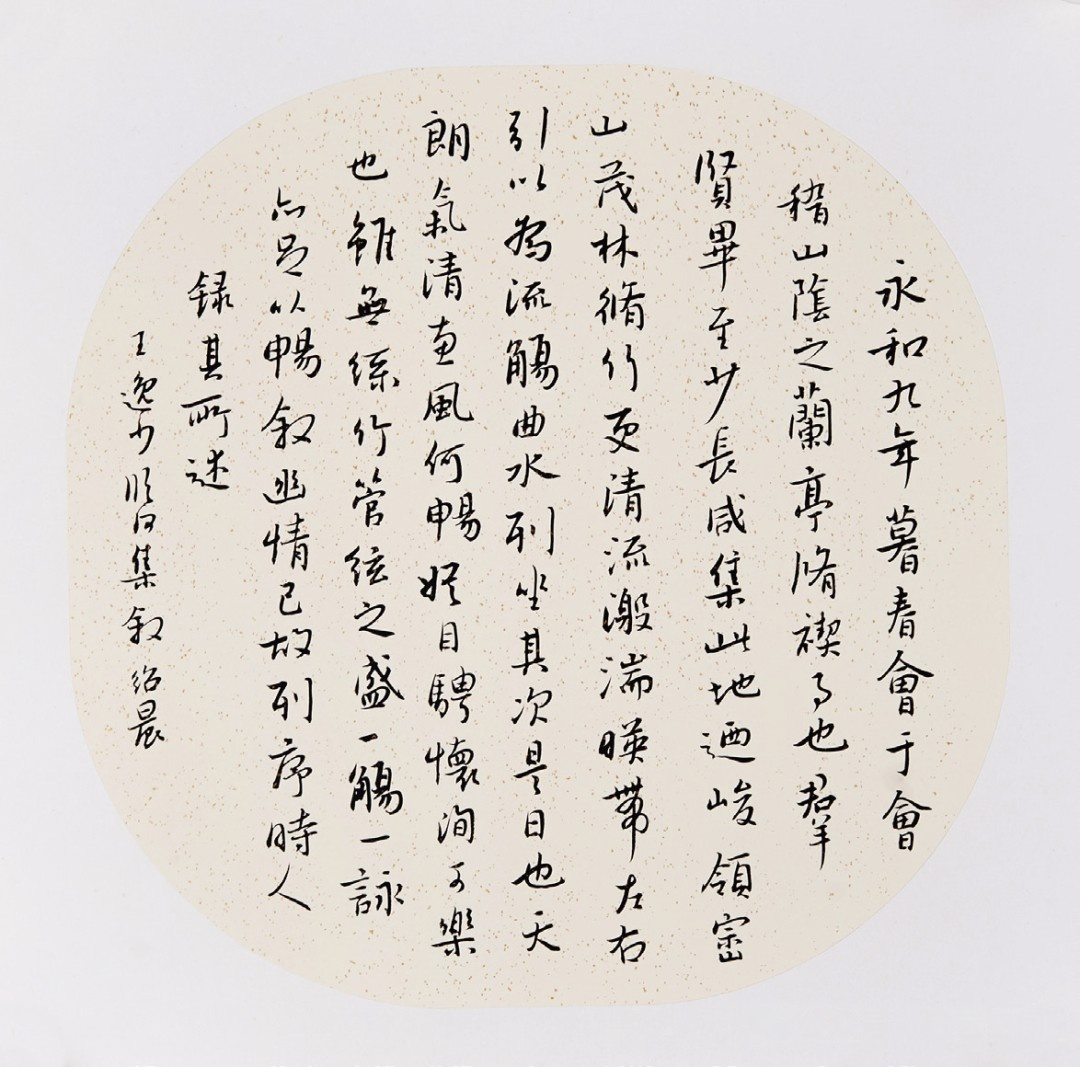 永和九年暮春會于會
稽山陰之蘭亭脩禊事也羣
賢畢至少長咸集此地迺峻領崈
山茂林脩竹更清流激湍暎帶左右
引以為流觴曲水列坐其次是日也天
朗氣清惠風何暢娛目騁懷洵可樂
也雖無絲竹管絃之盛一觴一詠
亦足以暢敘幽情已故列序時人
録其所述
王逸少臨河集敘紹晨